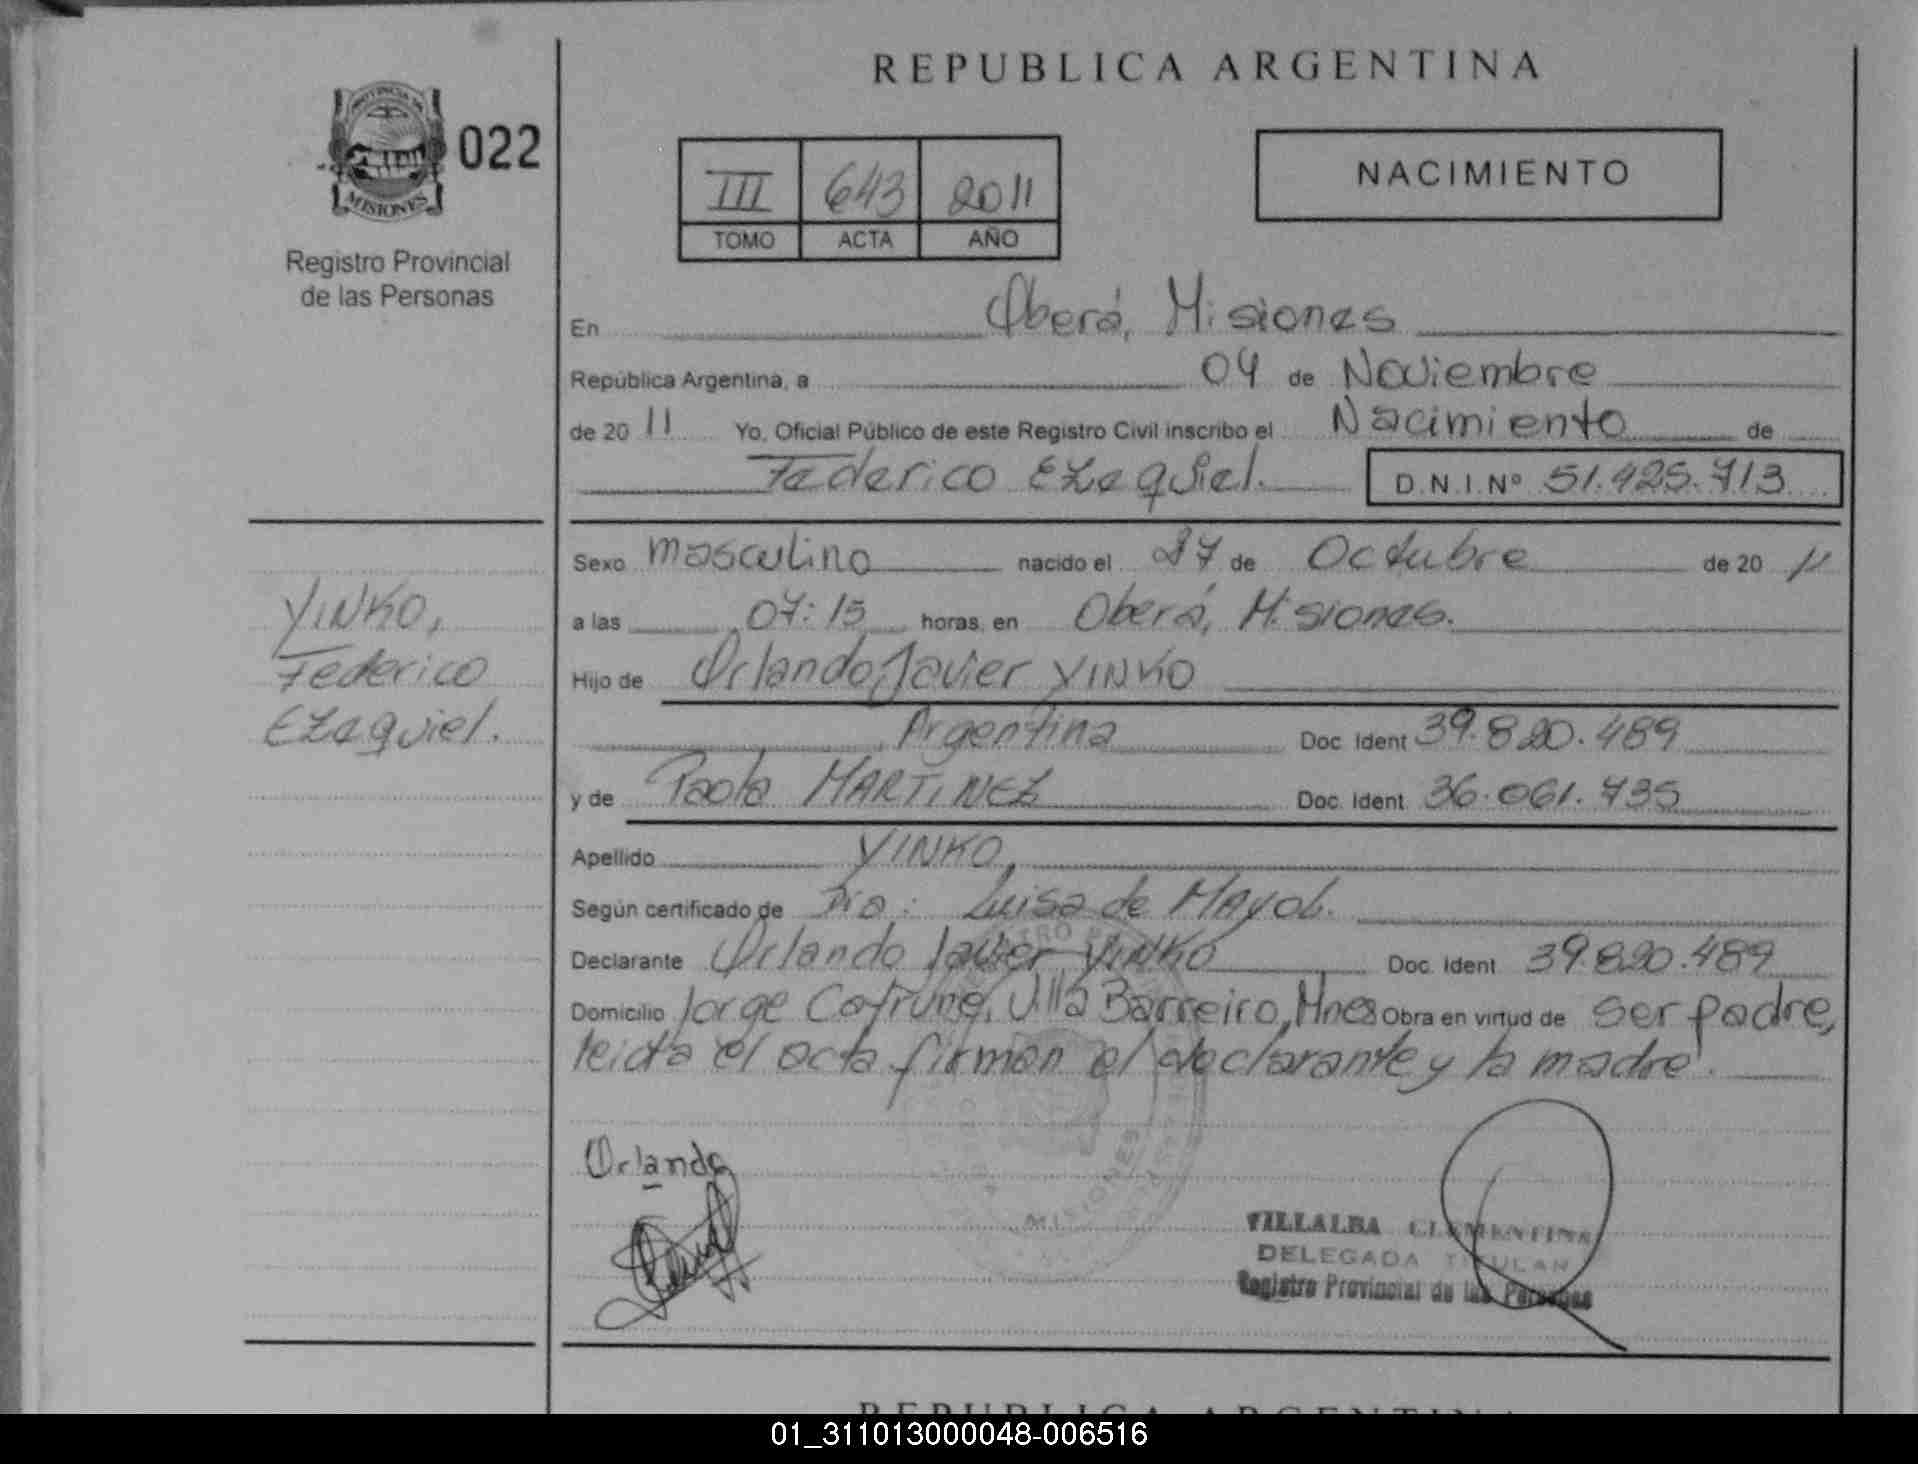 REPUBLICA ARGENTINA
PROVINCIA DE
MISIONES
022
Registro Provincial
de las Personas
III 643 2011
TOMO ACTA AÑO
NACIMIENTO
En Oberá, Misiones
República Argentina, a 04 de Noviembre
de 2011 Yo, Oficial Público de este Registro Civil inscribo el Nacimiento de
Federico Ezequiel. D.N.I.Nº 51.425.713
Sexo masculino nacido el 27 de Octubre de 2011
a las 07:15 horas, en Oberá, Misiones.
Hijo de Orlando Javier YINKO
Argentina Doc. Ident 39.820.489
y de Paola MARTINEZ Doc. Ident 36.061.735
Apellido YINKO,
Según certificado de Dra: Luisa de Mayol.
Declarante Orlando Javier YINKO Doc. Ident 39.820.489
Domicilio Jorge Cafrune, Villa Barreiro, Mnes Obra en virtud de ser padre,
leida el acta firman el declarante y la madre.
YINKO,
Federico
Ezequiel.
Orlando
MISIONES
VILLALBA CLEMENTINA
DELEGADA TITULAR
Registro Provincial de las Personas
REPUBLICA ARGENTINA
01_311013000048-006516